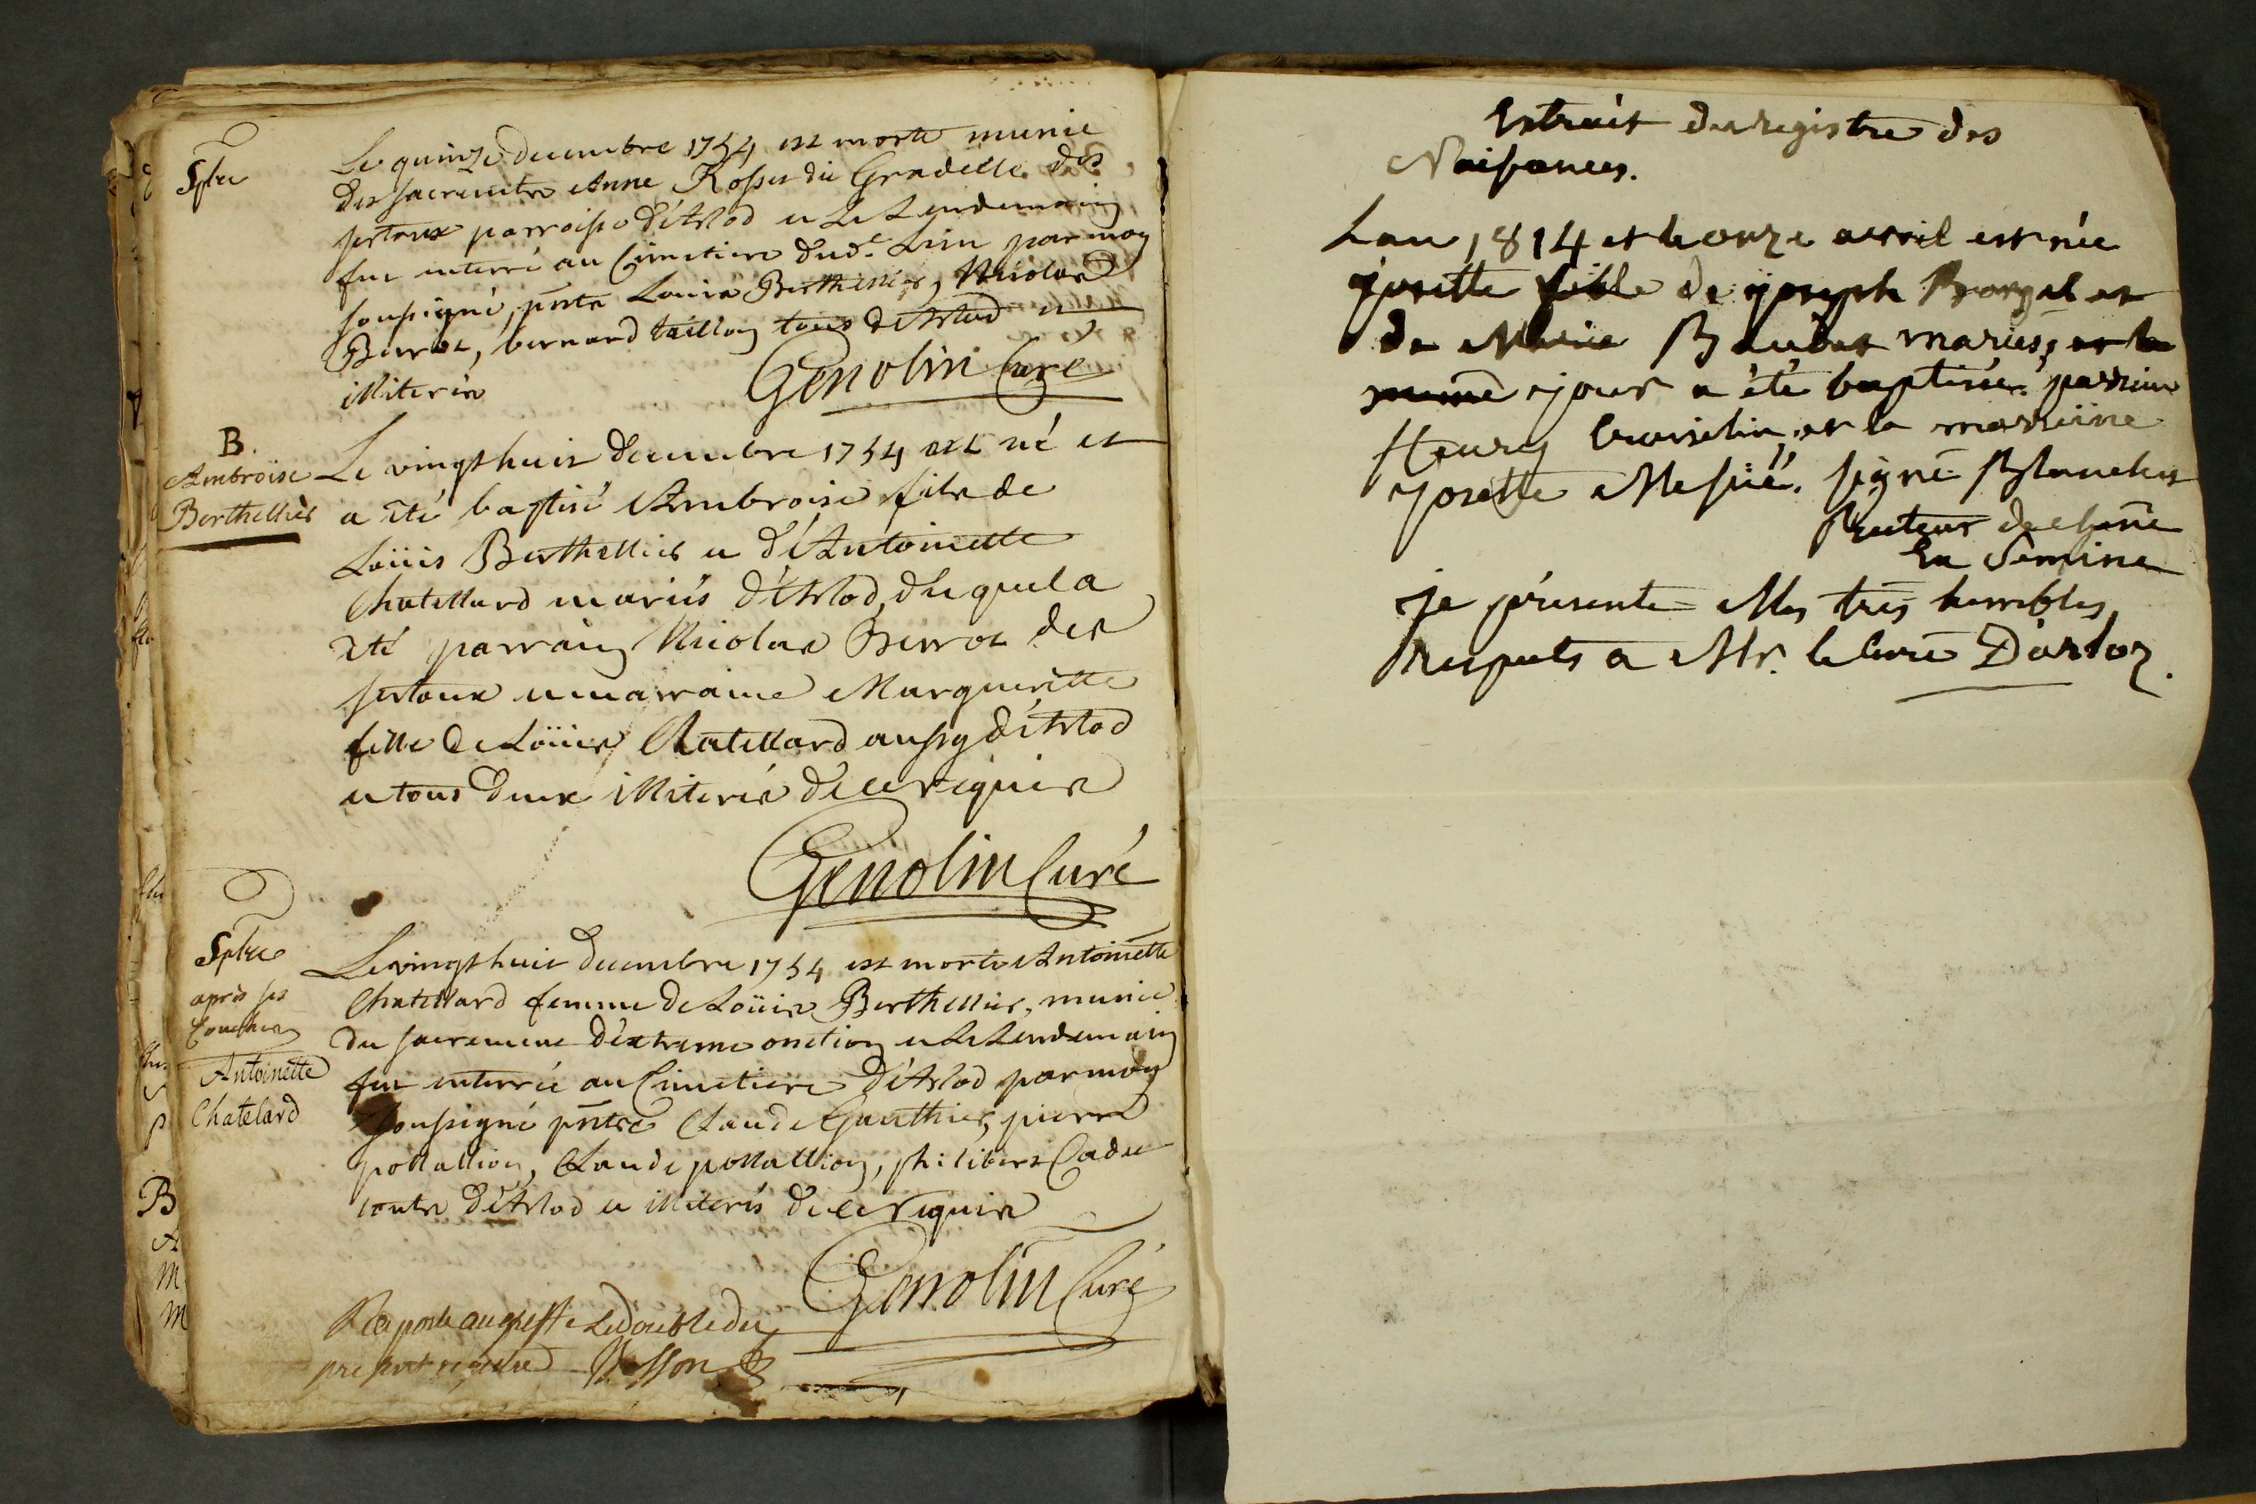 Spre
Le quinze decembre 1754 est morte munie
des sacrements Anne Rosset dit Gradelle des
sertoux parroisse d'Arlod et le Lendemain
fut enterré au Cimetiere dud. Lieu par moy
soussigné, pnts Louis Berthellier, Nicolas
Berrot, bernard taillon tous d'Arlod et
illiterés
Genolin Curé
B.
Ambroise
Berthellier
Le vingt huit decembre 1754 est né et
a été baptisé Ambroise fils de
Loüis Berthellier et d'Antoinette
Chatellard mariés d'Arlod, duquel a
été parrain Nicolas Berrot des
sertoux et marraine Margueritte
fille de Loüis Chatellard aussy d'Arlod
et tous deux illiterés de ce requis
Genolin Curé
Spbre
après ses
Couches
Antoinette
Chatelard
Le vingt huit decembre 1754 est morte Antoinette
Chatellard femme de Loüis Berthellier, munie
du sacrement d'extreme onction et le Lendemain
fut enterrée au Cimetiere d'Arlod par moy
soussigné pnts Claude Gauthier, pierre
postallion, Claude postallion, philibert
touts d'Arlod et illiterés de ce requis
Genolin Curé
Raporté au greffe Le double du
present registre
B
A
M
M
Extrait du registre des
Naissances.
L'an 1814 et le onze avril est née
josette fille de joseph Borgel et
de Marie Baudet mariés, et le
meme jour a été baptisée. parrain
Henry et la marraine
josette Messié. signé Blanchet
Recteur de chêne
En Semine
je présente Mes très humbles
respects a Mr. le Curé D'arloz.